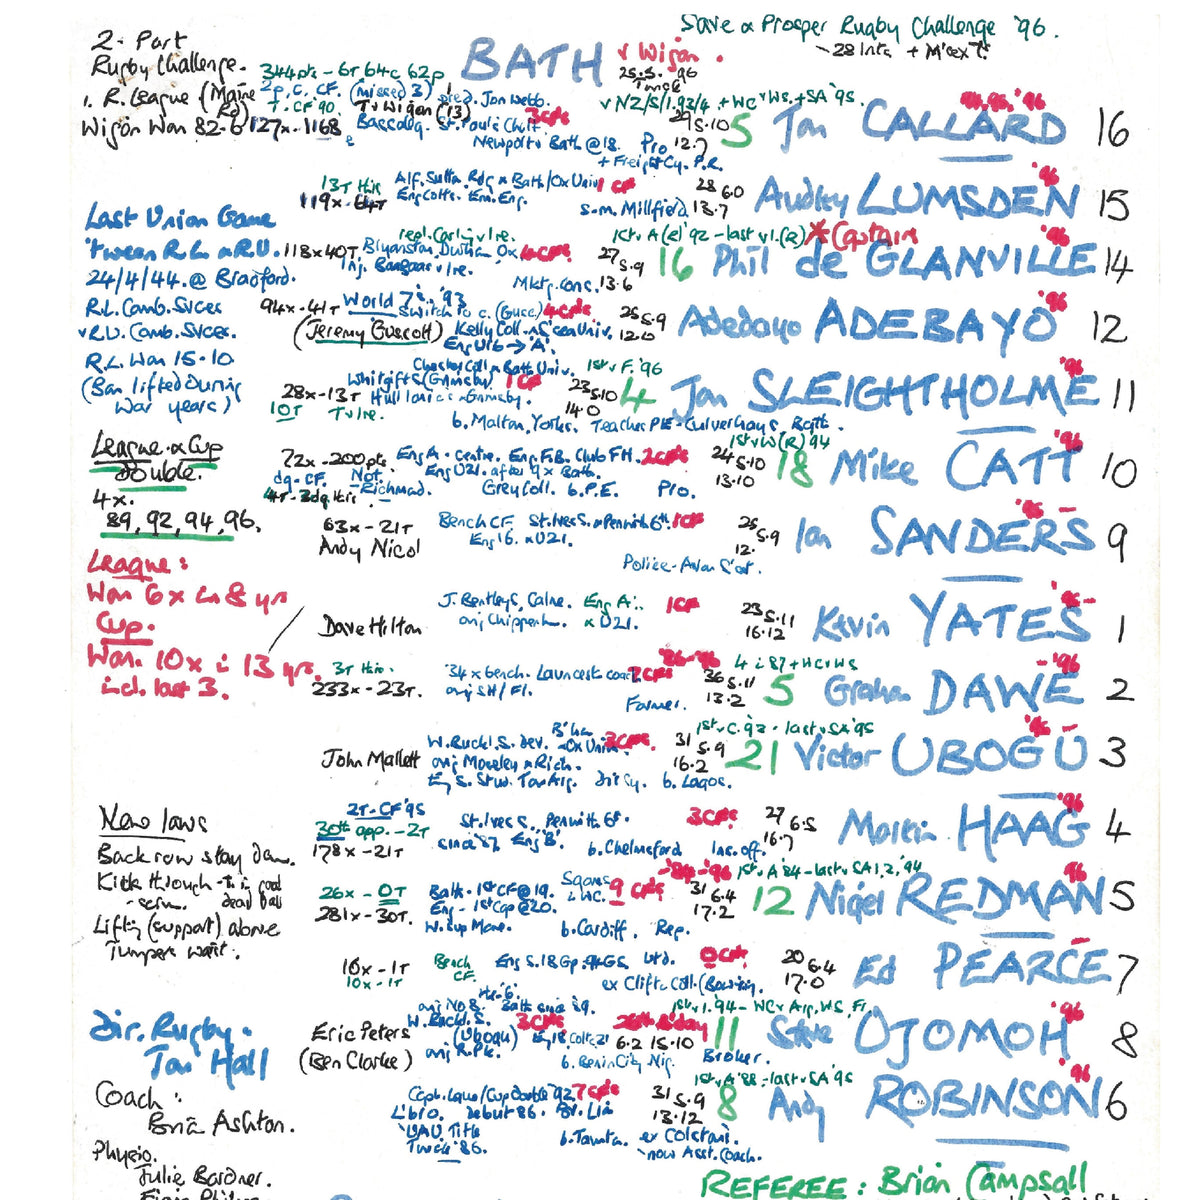 Save & Prosper Rugby Challenge '96.
- 28 Ints
2-Part
Rugby Challenge.
1. R. League (Maine Rd)
Wigan Won 82-6
BATH
v Wigan.
25.5.'96
344pts - 6T 64c 62p
pred. Jon Webb.
T v Wigan (13)
127x - 1168
St. Paul's
Newport v Bath @ 18. Pro
v NZ/S/1.93/4 + WC v WS. + SA '95.
29 5.10
12.7
5 Jon CALLARD 16
'96
13T this
119x - 64T
Alf. Sutton Rdg & Bath/Ox Univ
1 CF
s.m. Millfield
28 6.0
13.7
Audley LUMSDEN 15
'96
Last Union Game
'tween R.L. & R.U.
24/4/44. @ Bradford.
R.L. Comb. Svces
v R.U. Comb. Svces.
R.L. Won 15-10
(Ban lifted during
War years)
118x 40T
Bryanston, Durham, Ox
4 CFs
Mktg. cons.
1st v A (R) '92 - last v I. (R) * Captain
27 5.9
13.6
16 Phil de GLANVILLE 14
'96
94x - 41T
World 7s. '93
Switch to c. (Gusc.) 4 CFs
(Jeremy Guscott)
Kelly Coll. & S'sea Univ.
Eng U16 → 'A'.
25 5.9
12.0
Adedayo ADEBAYO 12
'96
Chester Coll & Bath Univ.
1st v F. '96
Whitgift S (Grimsby)
1 CF
28x - 13T
Hull Ionians Grimsby.
10T
23 5.10
14.0
4 Jon SLEIGHTHOLME 11
'96
b. Malton, Yorks. Teacher PE - Culverhays. Bath.
League & Cup
double.
4x.
89, 92, 94, 96.
72x - 200pts
Eng A - centre. Eng F.B. Club FH. 2 CFs
Eng U21. after 9x Bath.
Not Richmond.
Grey Coll. b. P.E. Pro.
1st v W (R) 94
24 5.10
13.10
18 Mike CATT 10
'96
63x - 21T
Andy Nicol
Bench CF. St. Ives S. & Penwith 6th. 1 CF
Eng 16. & U21.
Police - Avon S'set.
25 5.9
12.
Ian SANDERS 9
'96 -
League:
Won 6x in 8 yrs
Cup.
Won. 10x in 13 yrs.
incl. last 3.
Dave Hilton
J. Bentley S, Calne. Eng A. 1 CF
orig Chippenh. & U21.
23 5.11
16.12
Kevin YATES 1
'96 -
3T this.
233x - 23T.
'34 x bench. Launcest coa
2 CFs
'86-'96
orig SH / Fl.
Farmer.
4 in 87 + WC v WS
36 5.11
13.2
5 Graham DAWE 2
- '96
John Mallett
W. Buckl. S. dev. B'ham & Ox Univ. 3 CFs
orig Moseley & Rich.
b. Lagos.
1st v C. 92 - last v SA '95
31 5.9
16.2
21 Victor UBOGU 3
'96 -
New laws
Back row stay down.
Kick through
scrum. dead ball
Lifting (support) above
Jumpers waist.
2T - CF '95
30th app. - 2T
178x - 21T
St. Ives S. Penwith 6F.
since '87 Eng 'B'.
b. Chelmsford Ins. off.
3 CFs
27 6.5
16.7
Martin HAAG 4
'96
'84-'96
1st v A 84 - last v SA 1, 2, '94
26x - 0T
281x - 30T.
Bath - 1st CF @ 19.
Eng - 1st Cap @ 20.
9 CFs
b. Cardiff. Rep.
31 6.4
17.2
12 Nigel REDMAN 5
'96
16x - 1T
10x - 1T
Bench CF.
Eng S. 18 Gp.
0 CFs
ex Clifton Coll.
20 6.4
17.0
Ed PEARCE 7
-
Dir. Rugby.
Jon Hall
Eric Peters
(Ben Clarke)
orig No 8. Bath since '89.
W. Buckl. S.
(Ubogu)
3 CFs
26th B'day
orig R. Pk.
b. Benin City, Nig. Broker.
1st v I. '94 - WC v Arg, WS, Fr
6.2 15.10
11 Steve OJOMOH 8
'96
Coach:
Brian Ashton.
Capt. Lgue/Cup double '92 7 CFs
debut 86.
UAU Title
Twick '86.
b. Taunton. ex Colston's.
now Asst. Coach.
1st v A '88 - last v SA '95
31 5.9
13.12
8 Andy ROBINSON 6
'96
Physio.
Julie Bardner.
REFEREE: Brian Campsall